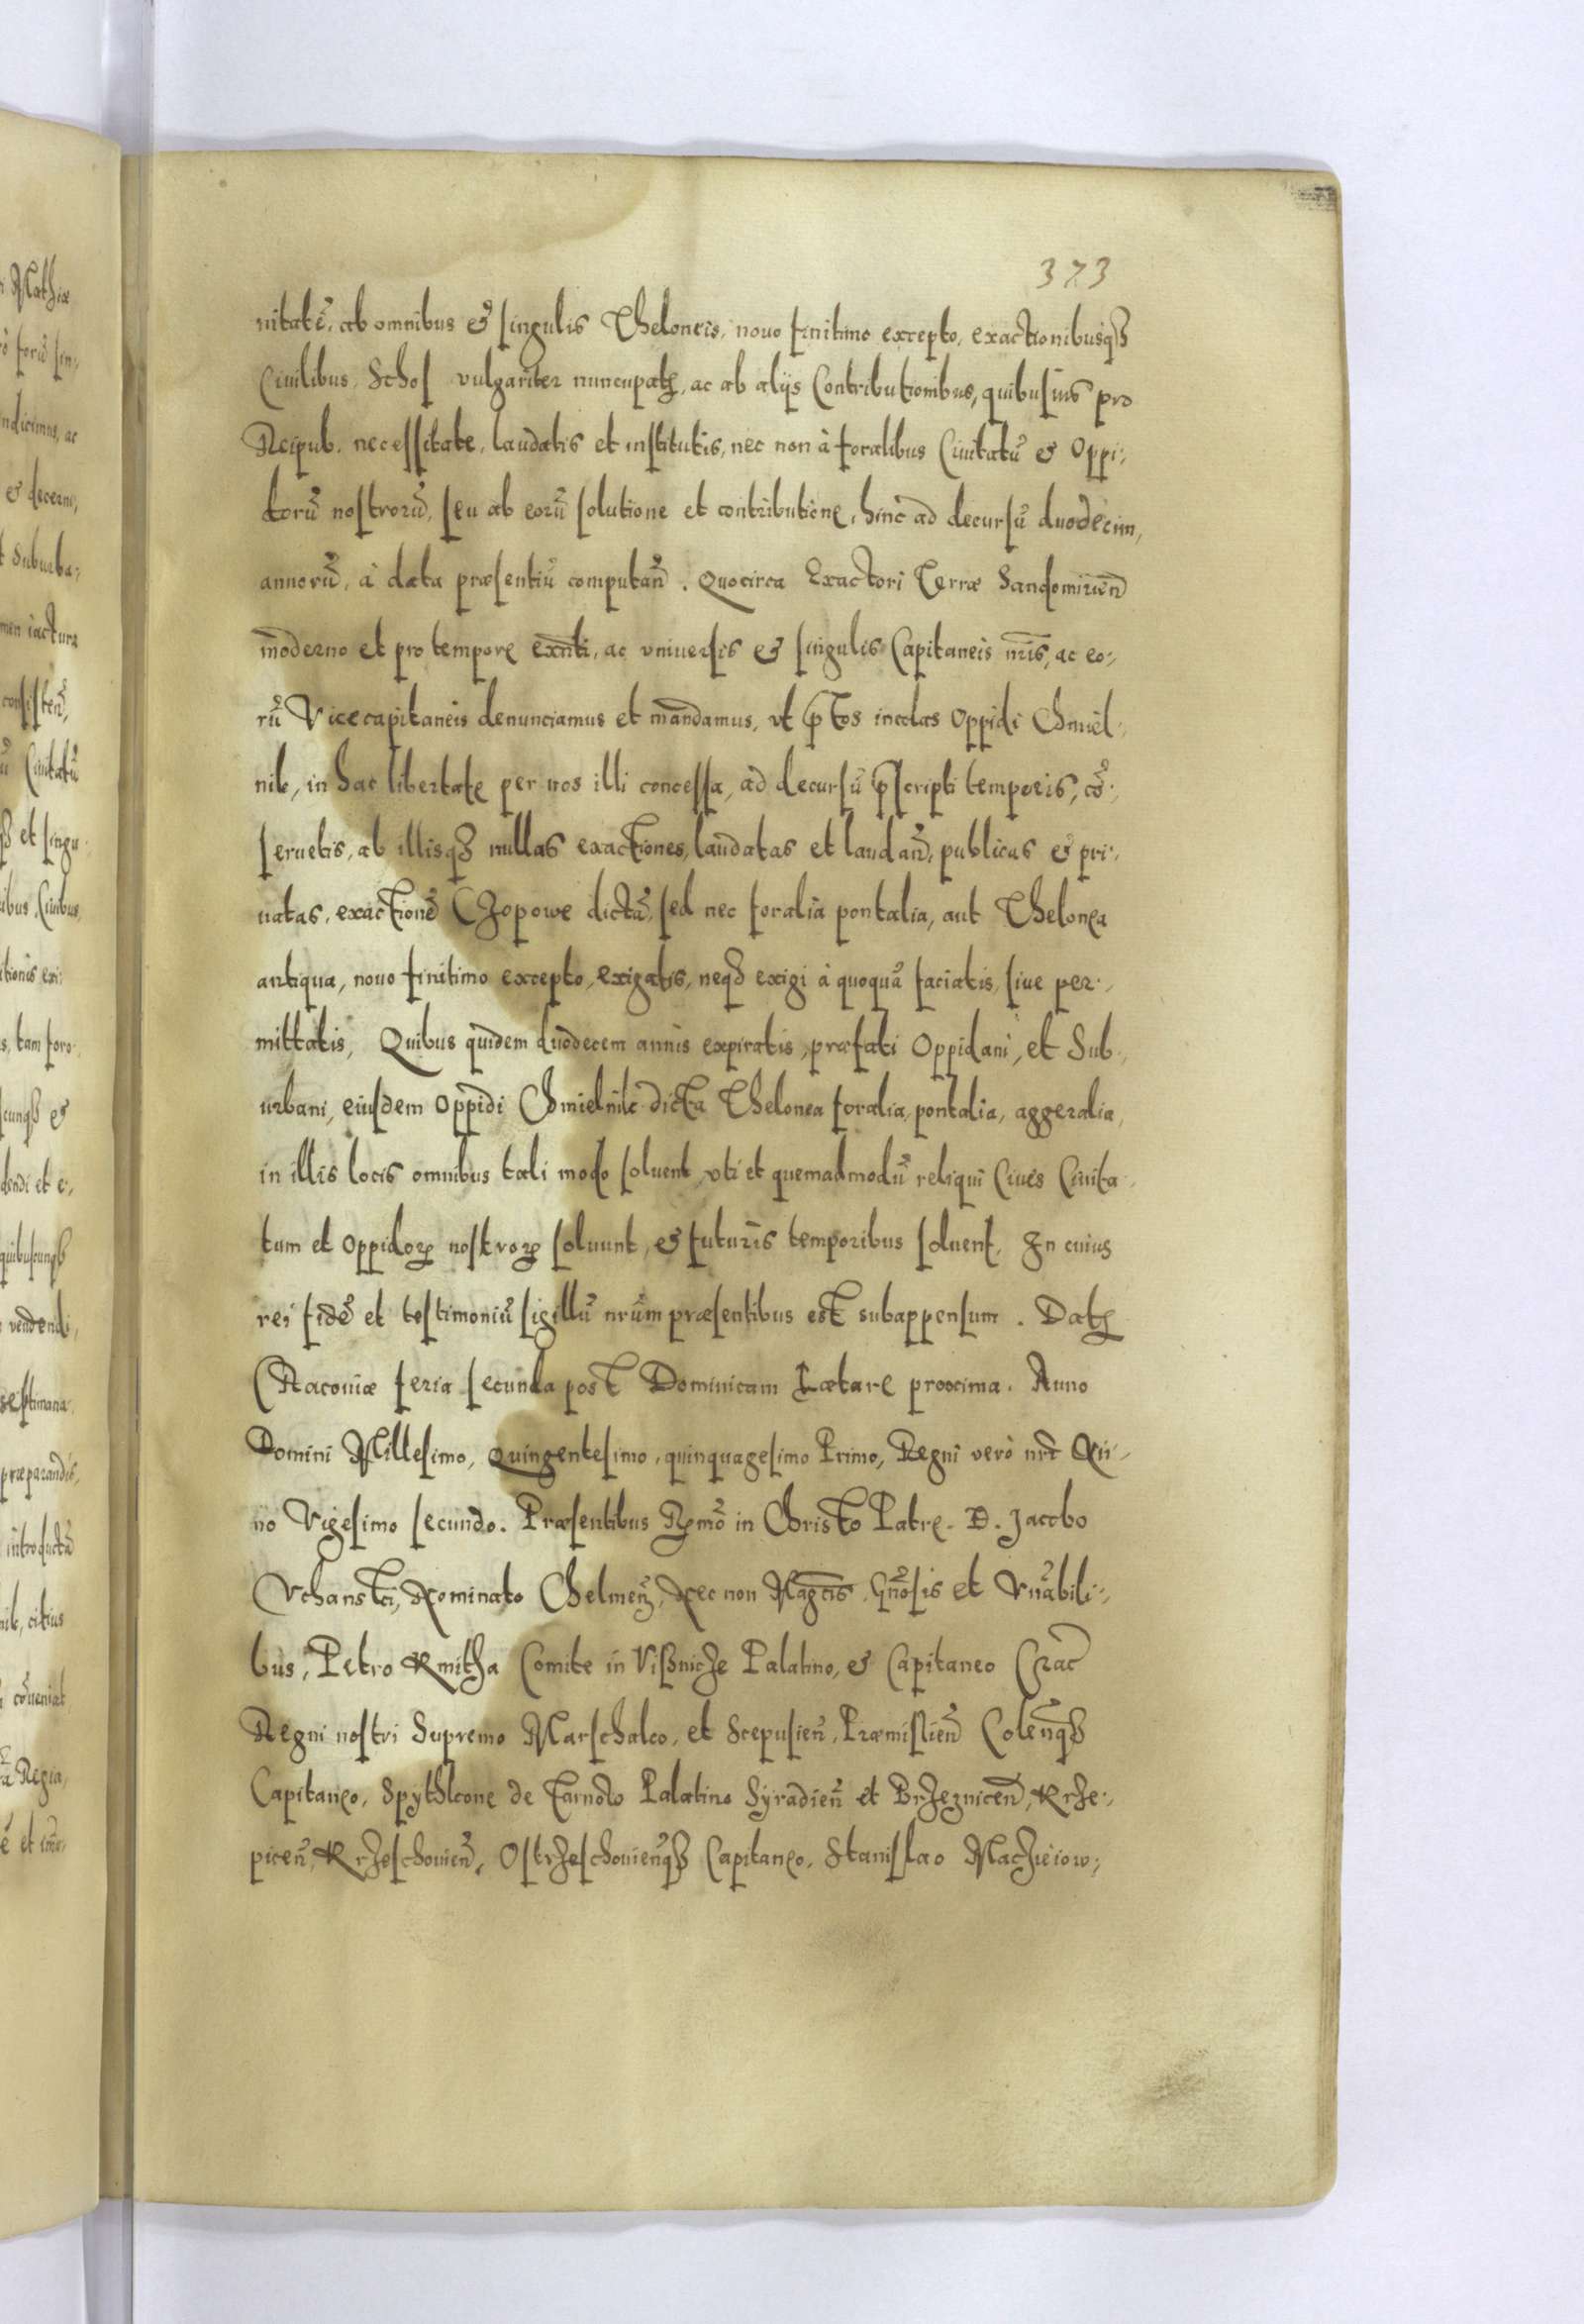 373
nitatē, ab omnibus & singulis Theloneis, nouo finitimo excepto, exactionibusq₃
Ciuilibus, Schos vulgariter nuncupatꝭ, ac ab alijs Contributionibus, quibusuis pro
Reipub. necessitate, laudatis et institutis, nec non à foralibus Ciuitatū & Oppi-,
dorū nostrorū, seu ab eorū solutione et contributione, hinc ad decursū duodecim,
annorū, à data præsentiū computan̄. Quocirca Exactori Terræ Sandomirien̄
moderno et pro tempore exn̄ti, ac vniuersis & singulis Capitaneis nr̄is, ac eo-,
rū Vicecapitaneis denunciamus et mandamus, vt p̄tos incolas Oppidi Chmiel-,
nik, in hac libertate per nos illi concessa, ad decursū p̄scripti temporis, cō-,
seruetis, ab illisq₃ nullas exactiones, laudatas et laudan̄, publicas & pri-,
uatas, exactionē Czopowe dictā, sed nec foralia pontalia, aut Thelonea
antiqua, nouo finitimo excepto, exigatis, neq₃ exigi à quoquā faciatis, siue per-,
mittatis, Quibus quidem duodecem annis expiratis, præfati Oppidani, et Sub-,
urbani, eiusdem Oppidi Chmielnik dicta Thelonea foralia, pontalia, aggeralia,
in illis locis omnibus tali modo soluent, vti et quemadmodū reliqui Ciues Ciuita-,
tum et Oppidoꝝ nostroꝝ soluunt, & futuris temporibus soluent. In cuius
rei fidē et testimoniū sigillū nr̄um præsentibus est subappensum. Datꝭ
Cracouiæ feria secunda post Dominicam Lætare proxima. Anno
Domini Millesimo, Quingentesimo, quinquagesimo Primo, Regni verò nr̄i An-,
no Vigesimo secundo. Præsentibus Rm̄o in Christo Patre. D. Jacobo
Vchansci, Nominato Chelmen̄, Nec non Magcīs, Gn̄osis et Vn̄abili-,
bus, Petro Kmitha Comite in Vißnicze Palatino, & Capitaneo Crac̄
Regni nostri Supremo Marschalco, et Scepusien̄, Præmislien̄ Colen̄q₃
Capitaneo, Spythkone de Tarnow Palatino Syradien̄ et Brzeznicen̄, Krze-,
picen̄, Krzeschouien̄, Ostrzeschouien̄q₃ Capitaneo, Stanislao Maczieiow-,